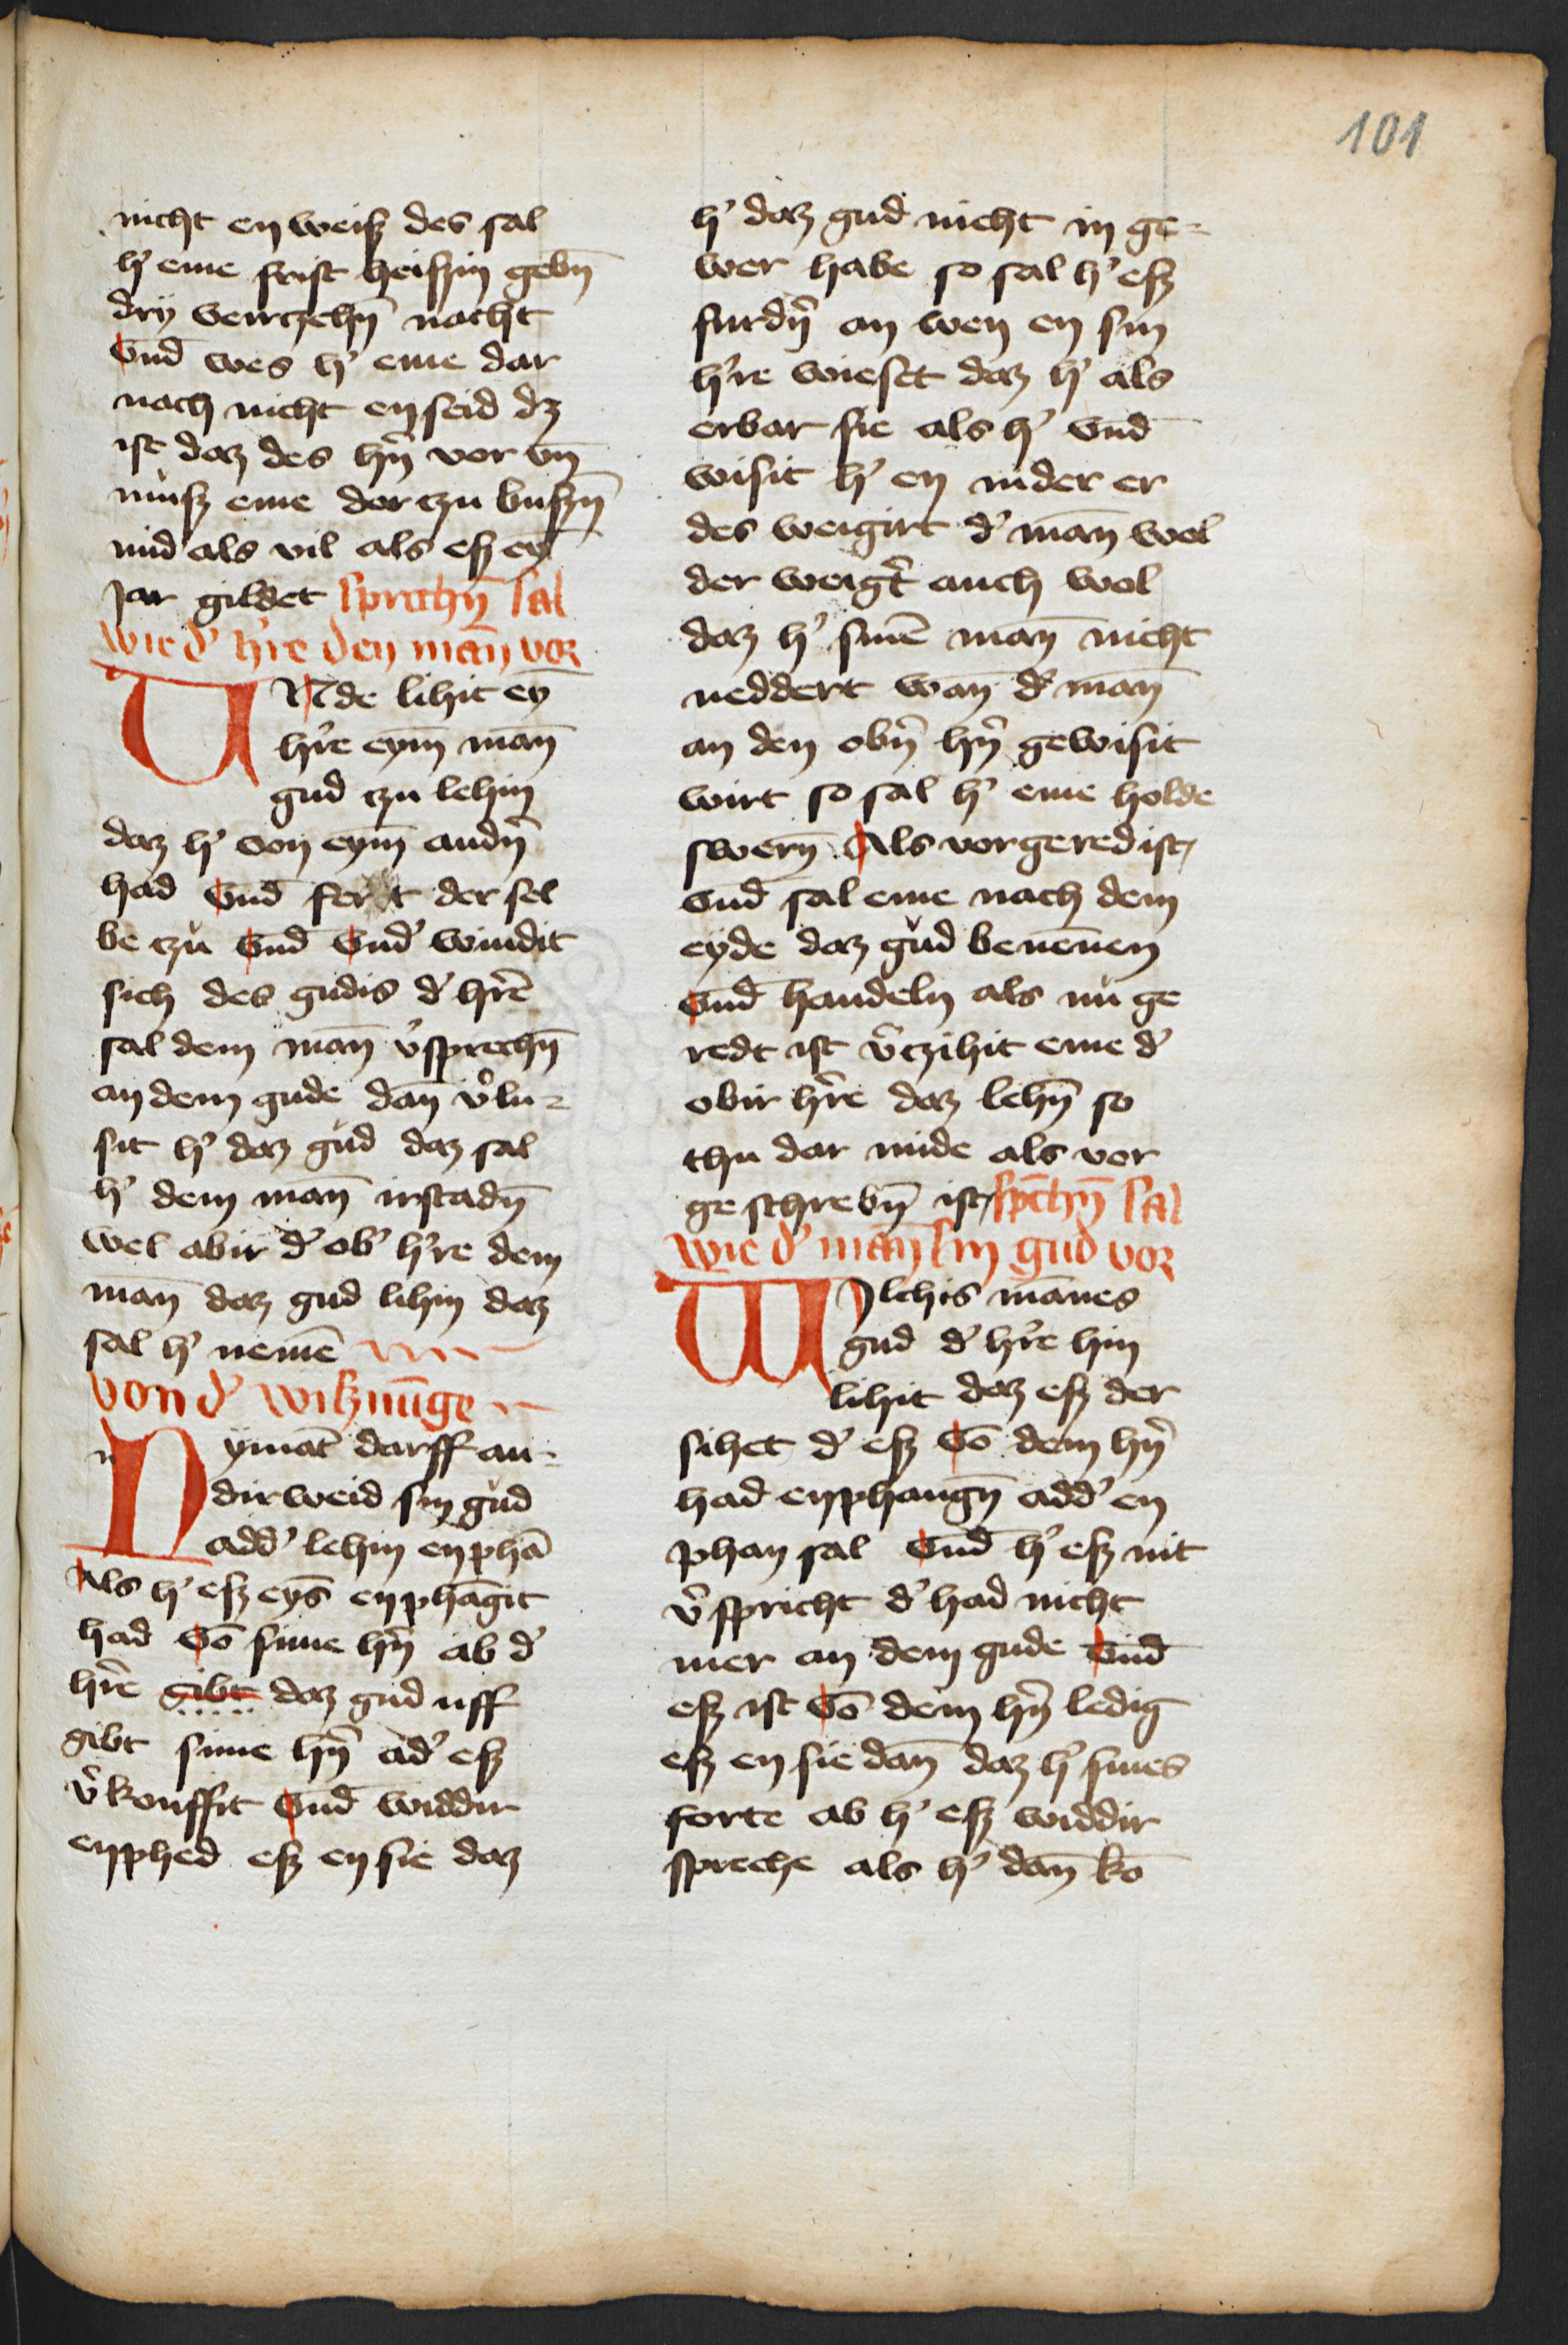 101
nicht en weisz des sal
h' eme frist heiszin gebn̄
dry virczehn̄ nacht
vnd̄ wes h' eme dar
nach nicht en seid dz
ist daz des hn̄ vor vn̄
mu̇sz eme dor tzu buszn̄
mid als vil als esz eȳ
jar gildet sprechn̄ sal
wie d' h're den man̄ vor
VNde lihit eȳ
h're eym̄ man̄
gud tzu lehin
daz h' von eym̄ andn̄
had vnd̄ fert der sel
be tzů vnd̄ vnd' windit
sich des gudis d' hrē
sal dem man̄ v'sprechn̄
an dem gude dan̄ v'lu-
sit h' daz gůd daz sal
h' dem man̄ irstadn̄
wel abir d' ob' h're dem
man̄ daz gud lihin daz
sal h' nemē
von d' wisznūge
n
Nymāt darff an-
dirweid sin gůd
add' lehin enphā
Als h' esz eys̄ enphāgit
had vō sime hn̄ ab d'
hrē gibt daz gůd uff
gibt sime hn̄ ad' esz
v'kouffit vnd̄ widdir
enphed esz en sie daz
h' daz gud nicht in ge-
wer habe so sal h' esz
furdn̄ an wen en sin
h're wieset daz h' als
erbar sie als h' vnd̄
wisit h' en nider er
des weigirt d' man̄ wol
der weigt̄ auch wol
daz h' sinē man̄ nicht
neddert wan̄ d' man̄
an den obn̄ hn̄ gewisit
wirt so sal h' eme holde
swern̄ Als vorgered ist
vnd̄ sal eme nach dem
eyde daz gůd benen̄en
vnd̄ handeln als nů ge
redt ist v'tzihit eme d'
obir hrē daz lehn̄ so
thu dar mide als vor
geschrebn̄ ist spchn̄ sal
wie d' man̄ sin gud vor
Wjlchis man̄es
gud d' h're hin
lihit daz esz der
sihet d' esz vō dem hn̄
had enphangn̄ add' en
phan sal vnd̄ h' esz nit
v'spricht d' had nicht
mer an dem gude vnd̄
esz ist vō dem hn̄ ledig
esz en sie dan̄ daz h' sines
forte ab h' esz widdir
spreche als h' dan̄ kō